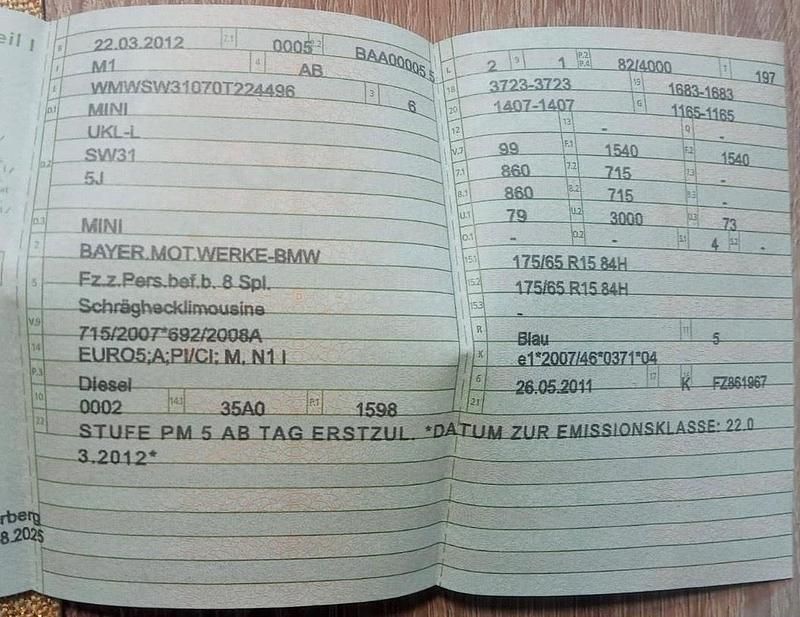 eil I
B 22.03.2012 2.1 0005 2.2 BAA00005 5
J M1 4 AB
E WMWSW31070T224496 3 6
D.1 MINI
UKL-L
D.2 SW31
5J
D.3 MINI
2 BAYER.MOT.WERKE-BMW
5 Fz.z.Pers.bef.b. 8 Spl.
Schräghecklimousine
V.9 715/2007*692/2008A
14 EURO5;A;PI/CI; M, N1 I
P.3 Diesel
10 0002 14.1 35A0 P.1 1598
22 STUFE PM 5 AB TAG ERSTZUL. *DATUM ZUR EMISSIONSKLASSE: 22.0
3.2012*
rberg
8.2025
L 2 9 1 P.2 P.4 82/4000 T 197
18 3723-3723 19 1683-1683
20 1407-1407 G 1165-1165
12 - 13 - Q -
V.7 99 F.1 1540 F.2 1540
7.1 860 7.2 715 7.3 -
8.1 860 8.2 715 8.3 -
U.1 79 U.2 3000 U.3 73
O.1 - O.2 - S.1 4 S.2 -
15.1 175/65 R15 84H
15.2 175/65 R15 84H
15.3 -
R Blau 11 5
K e1*2007/46*0371*04
6 26.05.2011 17 K 16 FZ861967
21